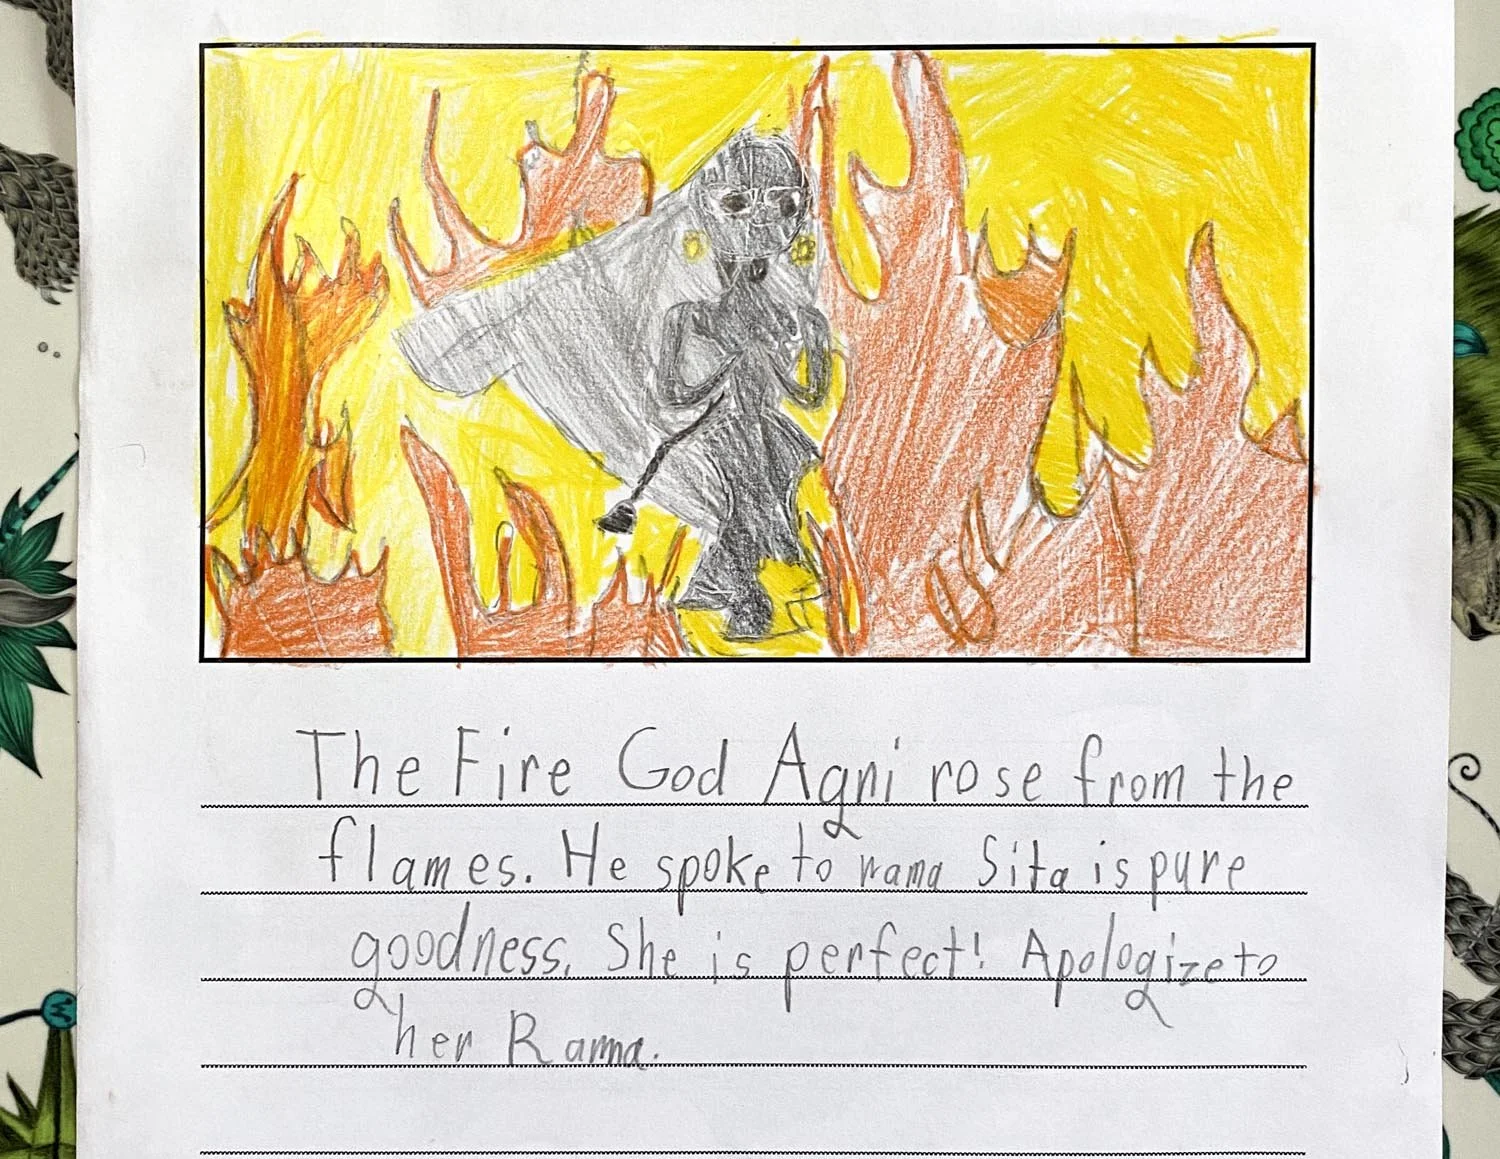 The Fire God Agni rose from the
flames. He spoke to rama Sita is pure
goodness. She is perfect! Apologize to
her Rama.